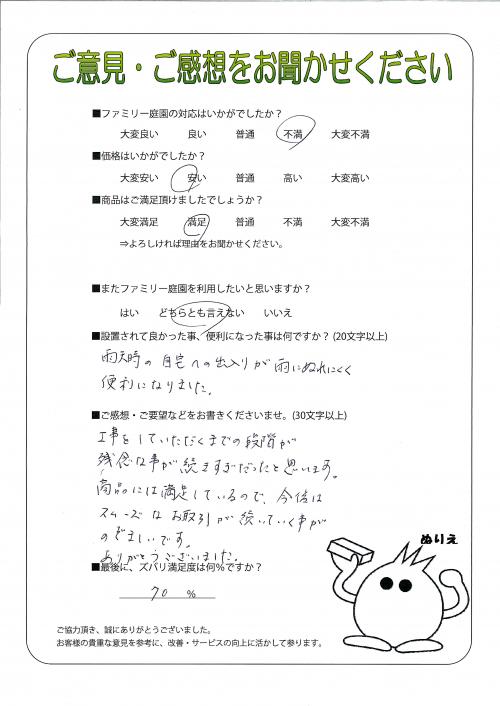 ご意見・ご感想をお聞かせください
■ファミリー庭園の対応はいかがでしたか？
大変良い 良い 普通 不満 大変不満
■価格はいかがでしたか？
大変安い 安い 普通 高い 大変高い
■商品はご満足頂けましたでしょうか？
大変満足 満足 普通 不満 大変不満
⇒よろしければ理由をお聞かせください。
■またファミリー庭園を利用したいと思いますか？
はい どちらとも言えない いいえ
■設置されて良かった事、便利になった事は何ですか？(20文字以上)
雨天時の自宅への出入りが雨にぬれにくく
便利になりました。
■ご感想・ご要望などをお書きくださいませ。(30文字以上)
工事をしていただくまでの段階が
残念な事が続きすぎだったと思います。
商品には満足しているので、今後は
スムーズなお取引が続いていく事が
のぞましいです。
ありがとうございました。
■最後に、ズバリ満足度は何％ですか？
70 ％
ぬりえ
ご協力頂き、誠にありがとうございました。
お客様の貴重な意見を参考に、改善・サービスの向上に活かして参ります。